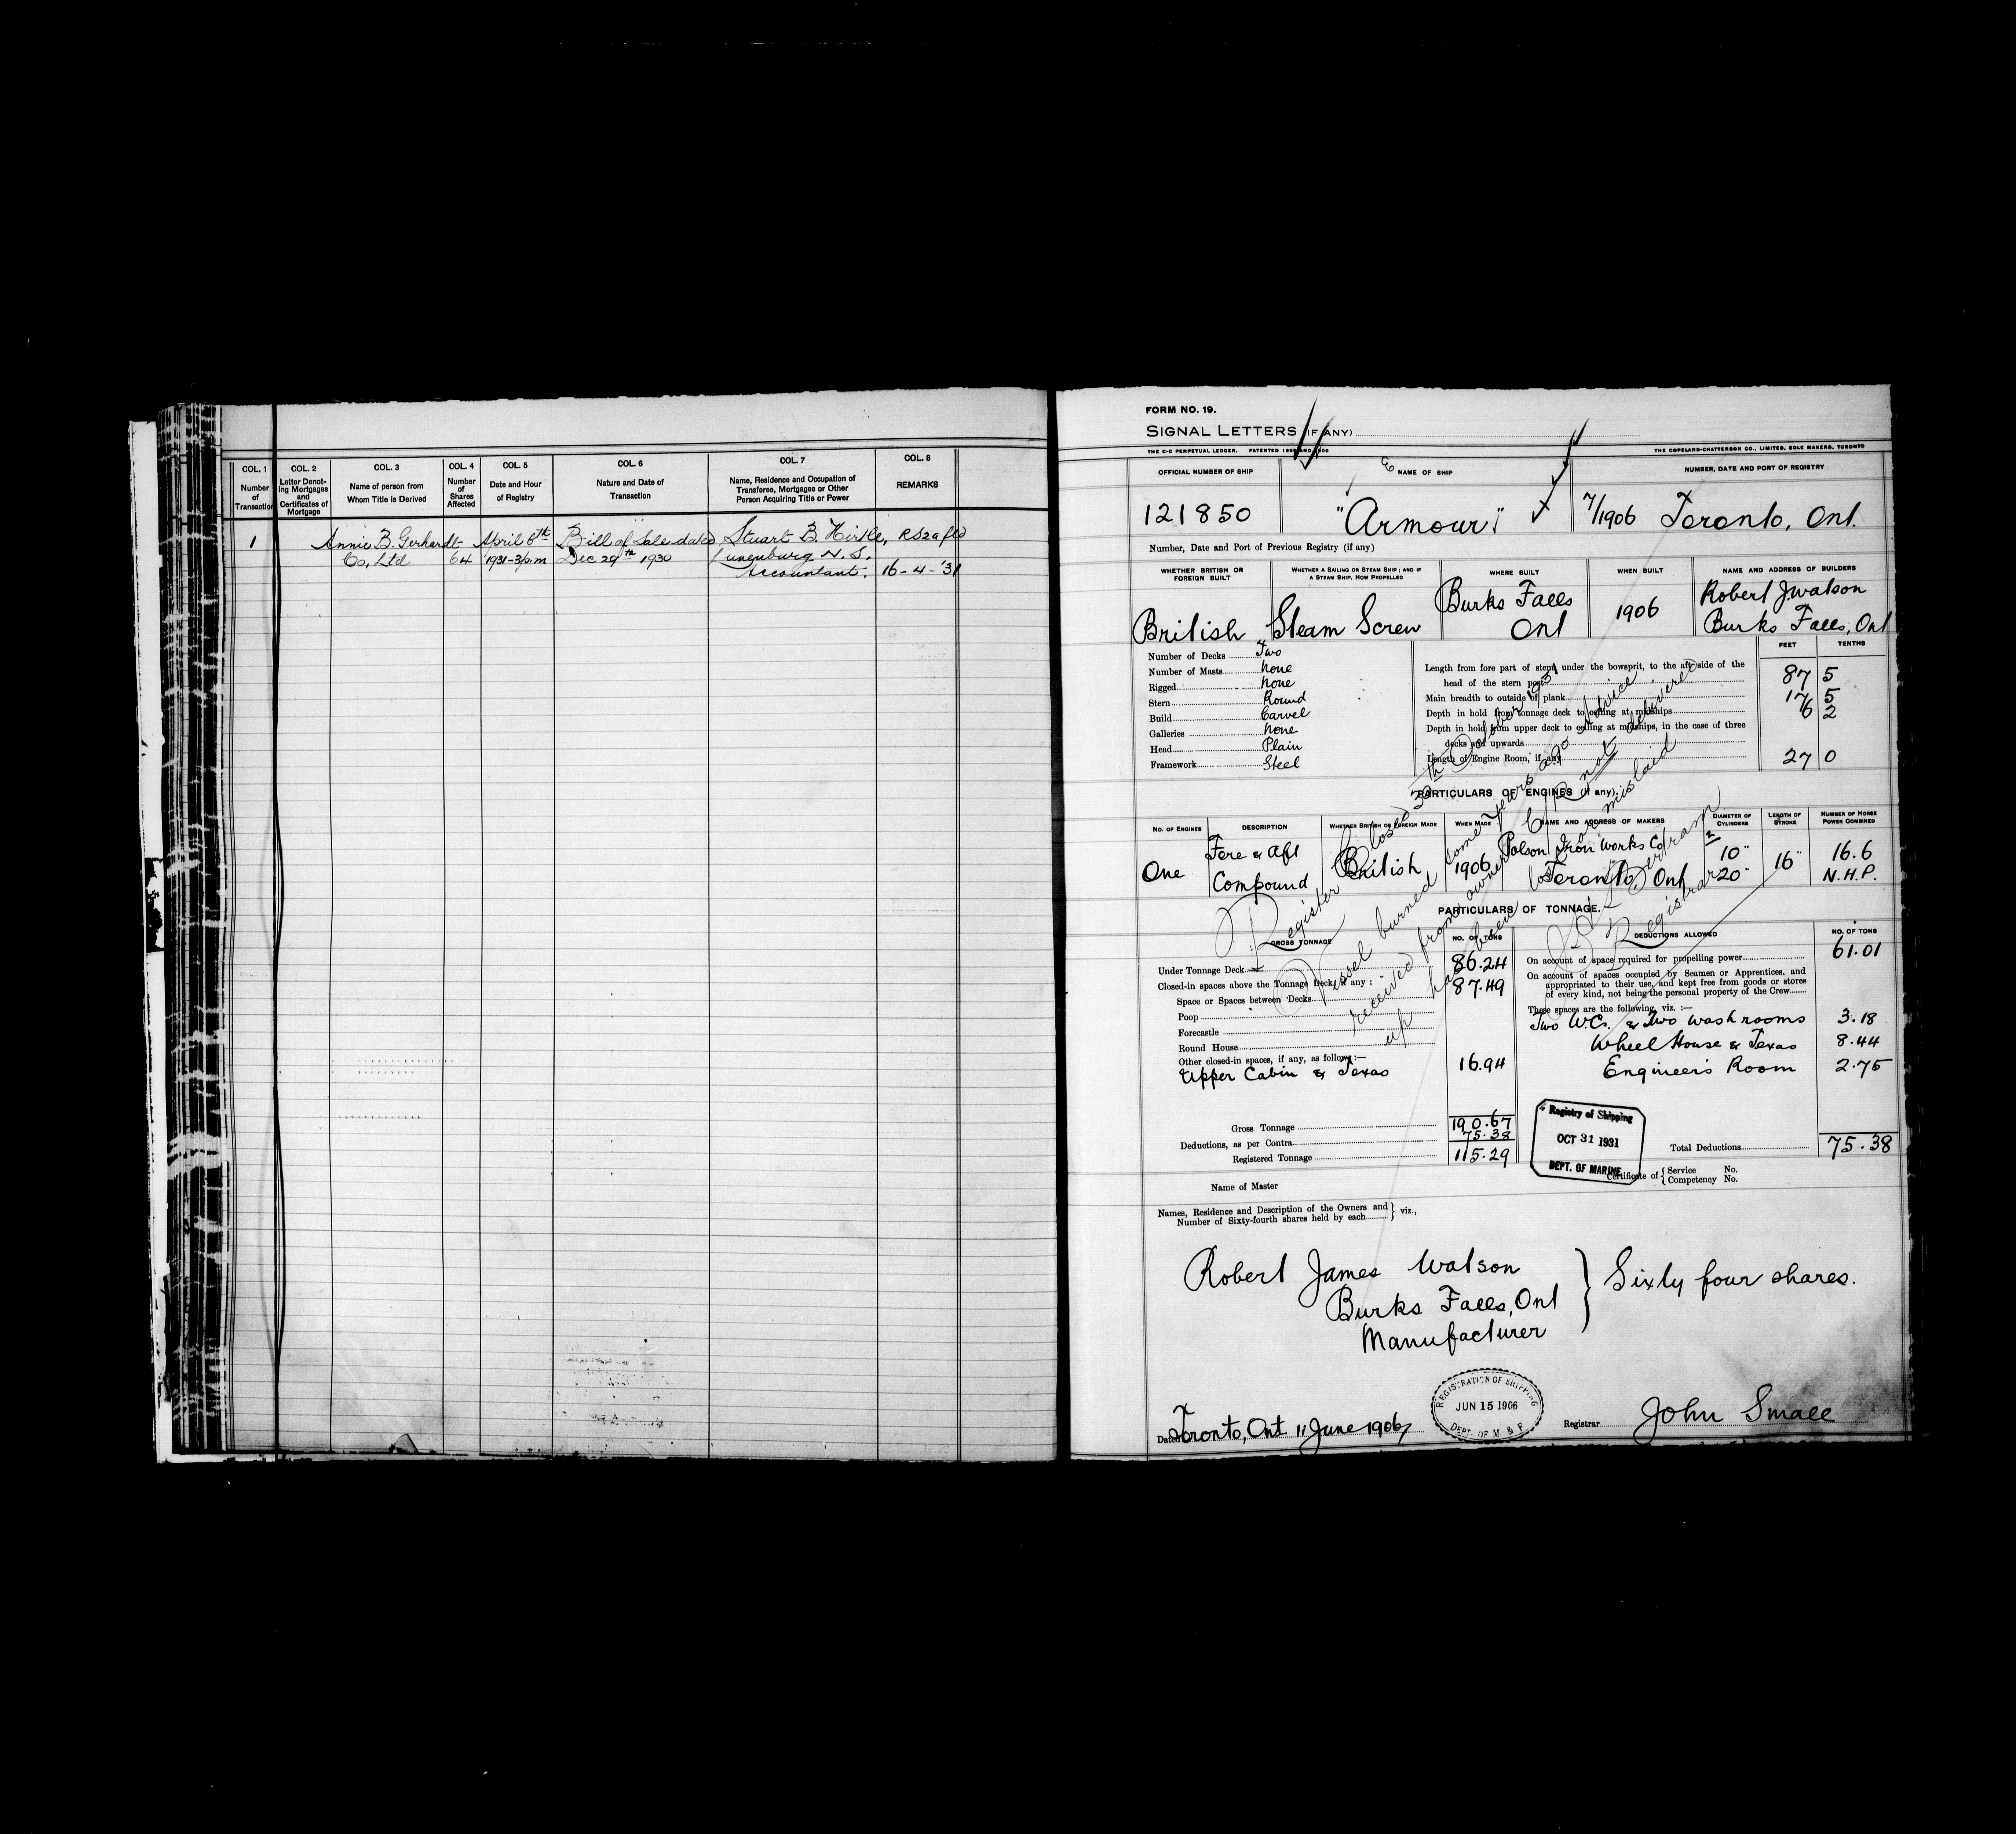 COL. 1 COL. 2 COL. 3 COL. 4 COL. 5 COL. 6 COL. 7 COL. 8
Number of Transaction
Letter Denoting Mortgages and Certificates of Mortgage
Name of person from Whom Title is Derived
Number of Shares Affected
Date and Hour of Registry
Nature and Date of Transaction
Name, Residence and Occupation of Transferee, Mortgagee or Other Person Acquiring Title or Power
REMARKS
1 Annie B. Gerhardt April 6th Bill of Sale dated Stuart B. Hirtle, RS2a fld
Co, Ltd 64 1931-3p.m Dec 29th 1930 Lunenburg N.S.
Accountant. 16-4-'31
FORM NO. 19.
SIGNAL LETTERS (IF ANY)
THE C-C PERPETUAL LEDGER. PATENTED THE COPELAND-CHATTERSON CO., LIMITED, SOLE MAKERS, TORONTO
OFFICIAL NUMBER OF SHIP NAME OF SHIP NUMBER, DATE AND PORT OF REGISTRY
121850 "Armour" 7/1906 Toronto, Ont.
Number, Date and Port of Previous Registry (if any)
WHETHER BRITISH OR FOREIGN BUILT
WHETHER A SAILING OR STEAM SHIP; AND IF A STEAM SHIP, HOW PROPELLED
WHERE BUILT
WHEN BUILT
NAME AND ADDRESS OF BUILDERS
British Steam Screw Burks Falls Ont 1906 Robert J. Watson
Burks Falls, Ont
FEET TENTHS
Number of Decks Two
Number of Masts None
Rigged None
Stern Round
Build Carvel
Galleries None
Head Plain
Framework Steel
Length from fore part of stem, under the bowsprit, to the aft side of the
head of the stern post 87 5
Main breadth to outside of plank 17 5
Depth in hold from tonnage deck to ceiling at midships 6 2
Depth in hold from upper deck to ceiling at midships, in the case of three
decks and upwards
Length of Engine Room, if any 27 0
PARTICULARS OF ENGINES (if any)
NO. OF ENGINES DESCRIPTION WHETHER BRITISH OR FOREIGN MADE WHEN MADE NAME AND ADDRESS OF MAKERS DIAMETER OF CYLINDERS LENGTH OF STROKE NUMBER OF HORSE POWER COMBINED
One Fore & Aft Compound British 1906 Polson Iron Works Co
Toronto, Ont
10" 20" 16" 16.6 N.H.P.
Register Closed 30th October 1931
Vessel burned some years ago advice
received from owner C/R not delivered
up has been lost or mislaid
Bertram
Registrar
PARTICULARS OF TONNAGE.
GROSS TONNAGE NO. OF TONS DEDUCTIONS ALLOWED NO. OF TONS
Under Tonnage Deck 86.24
Closed-in spaces above the Tonnage Deck, if any :
Space or Spaces between Decks 87.49
Poop
Forecastle
Round House
Other closed-in spaces, if any, as follows:—
Upper Cabin & Texas 16.94
Gross Tonnage 190.67
Deductions, as per Contra 75.38
Registered Tonnage 115.29
On account of space required for propelling power 61.01
On account of spaces occupied by Seamen or Apprentices, and
appropriated to their use, and kept free from goods or stores
of every kind, not being the personal property of the Crew
These spaces are the following, viz. :—
Two W.Cs. & Two Washrooms 3.18
Wheel House & Texas 8.44
Engineer's Room 2.75
Total Deductions 75.38
Registry of Shipping
OCT 31 1931
DEPT. OF MARINE
Name of Master
Certificate of { Service No.
Competency No.
Names, Residence and Description of the Owners and
Number of Sixty-fourth shares held by each } viz.,
Robert James Watson
Burks Falls, Ont } Sixty four shares.
Manufacturer
REGISTRATION OF SHIPPING
JUN 15 1906
DEPT. OF M. & F.
Dated Toronto, Ont 11 June 1906 Registrar John Small